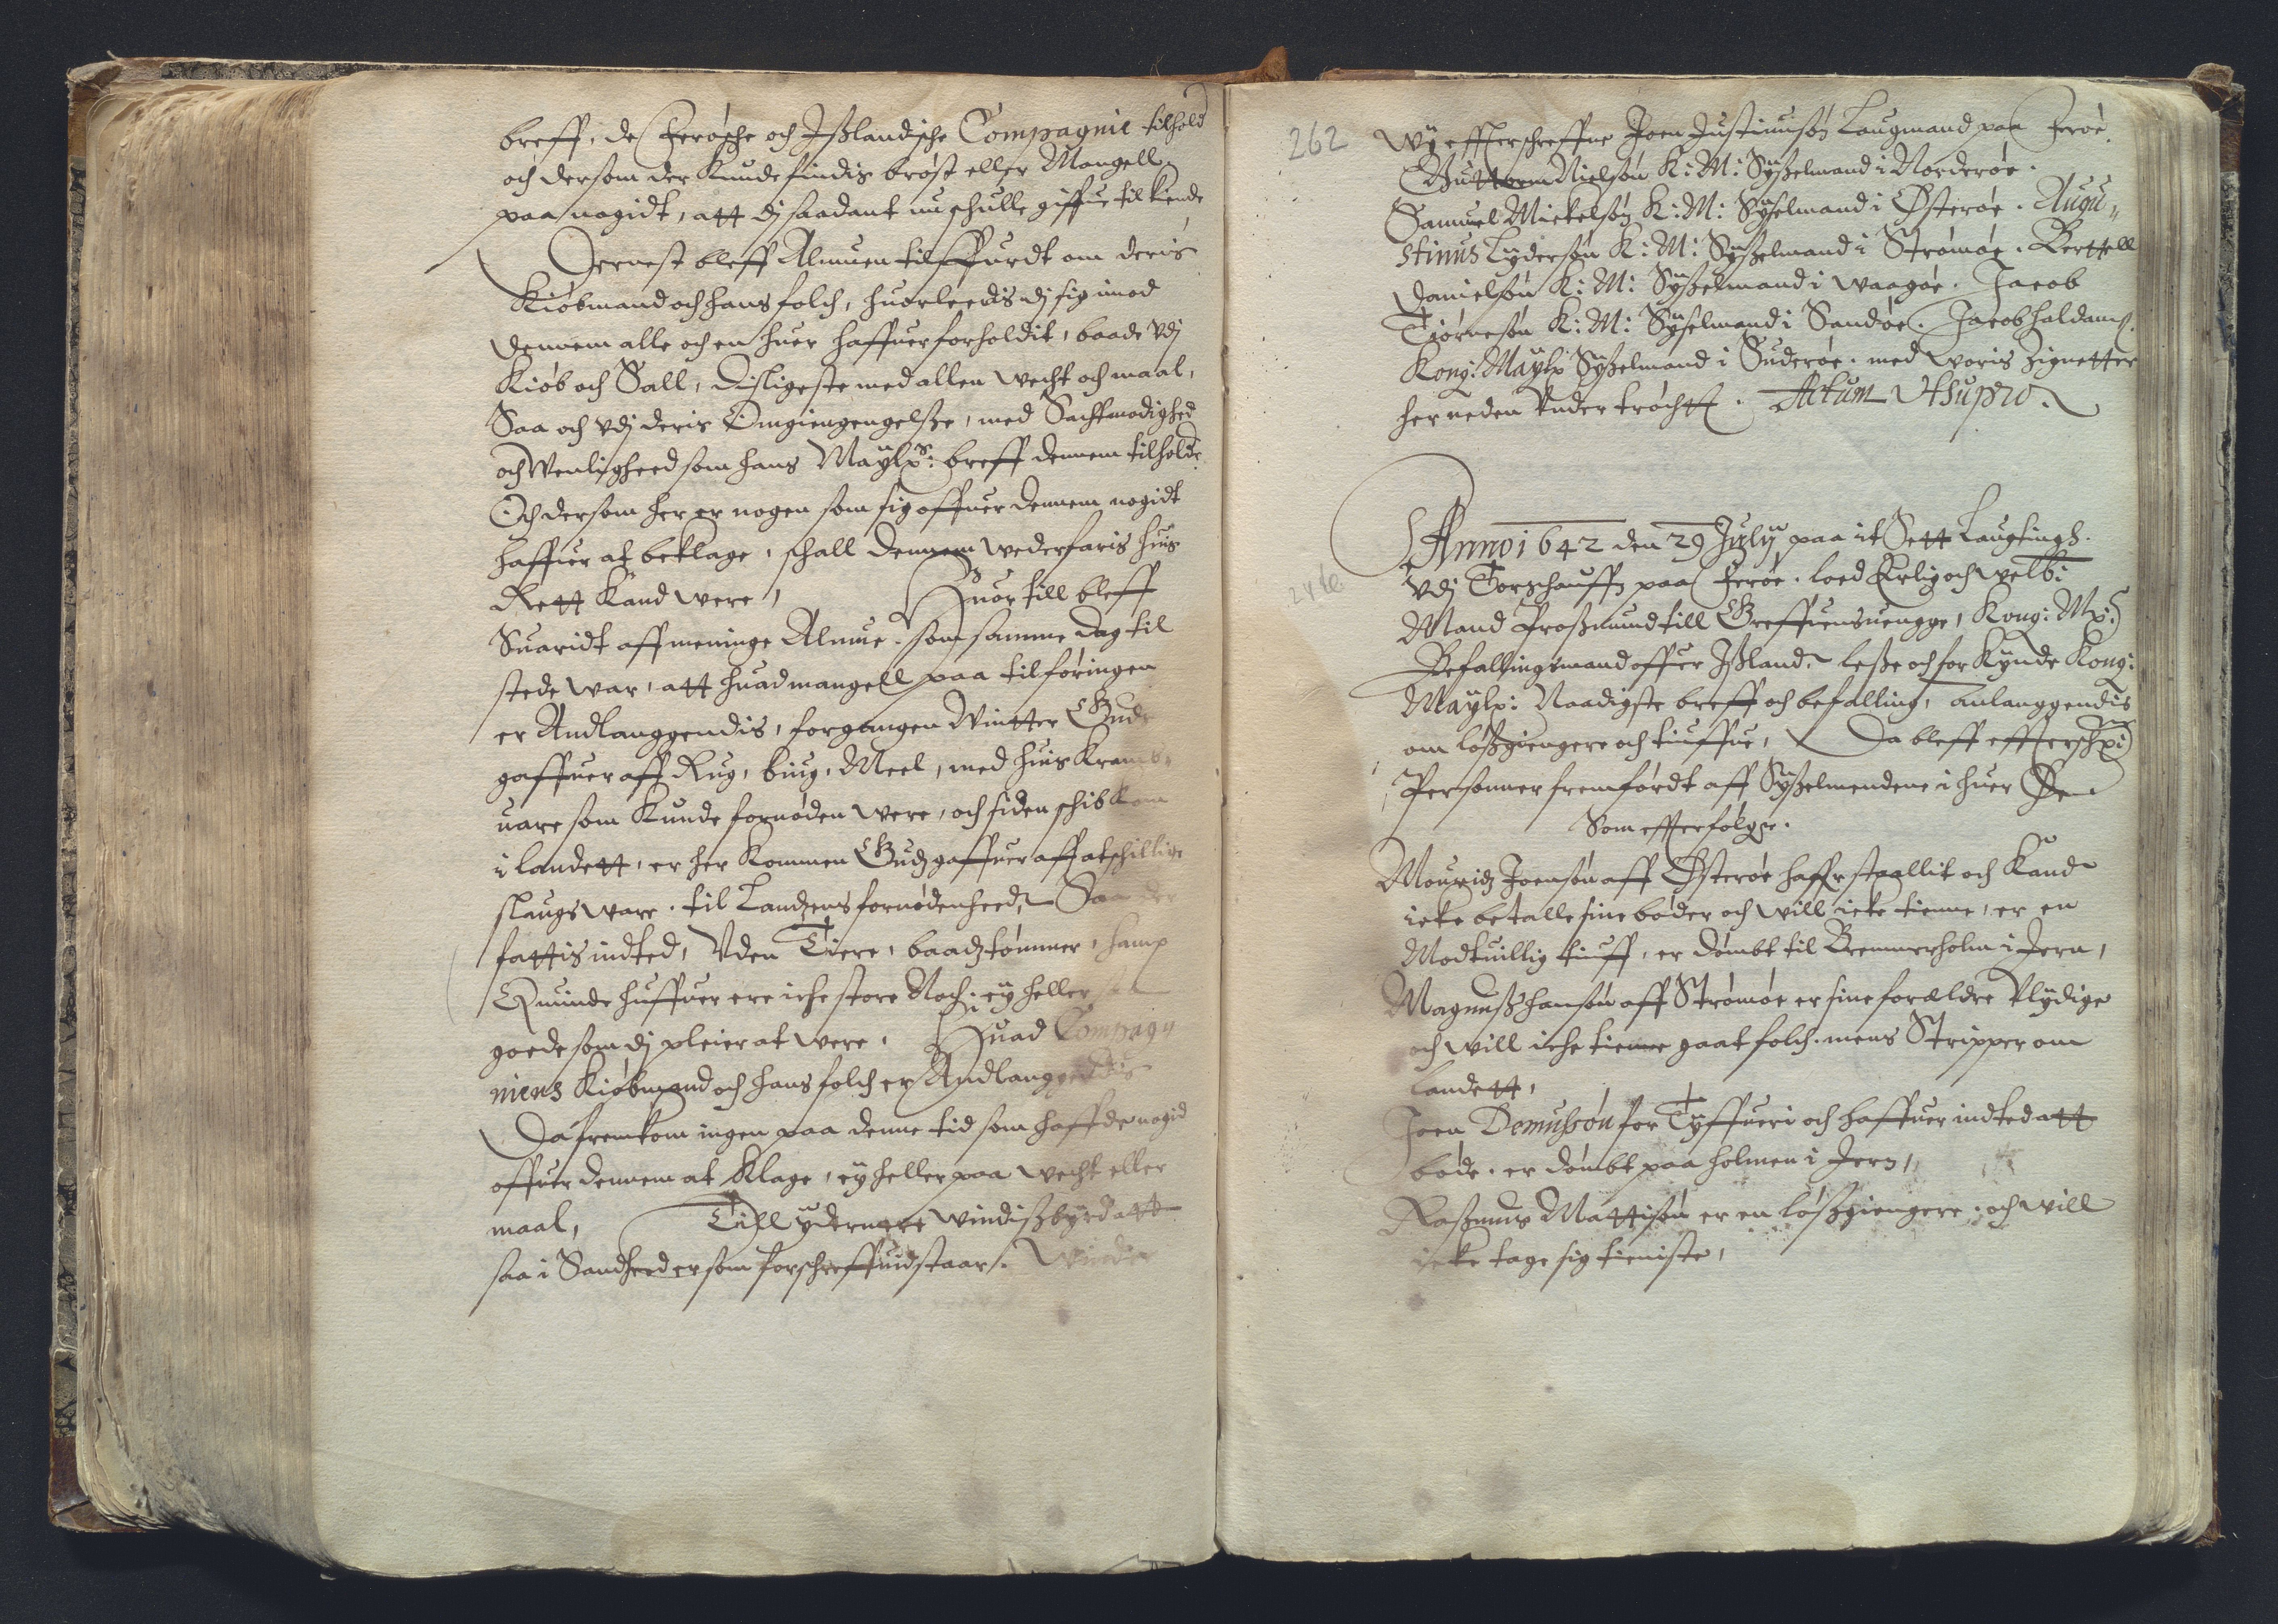 breff, de Ferøsche och Jßlandische Compagnie tilhold
och dersom der kunde findis brøst eller Mangell
paa nogidt, att dj saadant nu schulle giffue tilkiende
Dernest bleff Almuen tilspurdt om deris
Kiøbmand och hans folch, huorleedis dj sig imod
dennem alle och en huer haffuer forholdit, baade vdj
Kiøb och Sall, disligeste med allen wecht och maal,
Saa och vdj deris Omgiengengelsse, med Sachtmodighed
och Wenligheed som hans Maÿtz: breff dennem tilholde
Och dersom her er nogen som sig offuer dennem nogidt
haffuer at beklage, schall dennem wederfaris huis
Rett kand were, Huor till bleff
Suaridt aff meninge Almue, som samme dag til
stede war, att huad mangell paa tilføringen
er Andlanggendis, forgangen Wintter Gude
gaffuer aff Rug, biug, Meel, med huis Kramb
uare som kunde fornøden were, och siden schib kom
i landett, er her kommen Gudz gaffuer aff atschillige
slaugs ware, til Landzens fornødenheed, Saa der
fattis indted, vden Tiere, baadztømmer, hamp
Quinde huffuer ere iche store Noch, eÿ heller saa
goede som dj pleier at were, Huad Compagn
niens Kiøbmand och hans folch er Andlanggendis
Da fremkom ingen paa denne tid som haffde nogid
offuer dennem at klage, eÿ heller paa wecht eller
maal, Till ÿdermere windisbÿrd att
saa i Sandheed er som forschreffuid staar. Winder
262 Wÿ effterschreffne Joen Justinusøn Laugmand paa Ferøe
Guttorm Nielsøn K: M: Sÿßelmand i Norderøe.
Samuel Mickelsøn K: M: Sÿselmand i Østerøe. Augu„
stinus Lÿdersøn K: M: Sÿßelmand i Strømøe. Berttell
Danielsøn K: M: Sÿßelmand i Waagøe. Jacob
Tiørnesøn K: M: Sÿselmand i Sandøe. Jacob haldans.
Kong: Maÿtz Sÿßelmand i Suderøe. med woris Zignetter
her neden vnder tröcht. Actum Vtsupro.
Anno 1642 den 29 Julÿ paa it Sett Laugtings.
vdj Torßhauffn paa Ferøe. loed Erlig och welb:
Mand Proßmund till Greffuensuengge, Kong: Mz:
Befallingsmand offuer Jßland, leße och forkÿnde Kong:
Maÿtz: Naadigste breff och befalling, anlanggendis
om løßgiengere och tiuffue, Da bleff effterschr:
Personner fremførdt aff Sÿßelmendene i huer Øe
Som effterfølger.
Mouridz Joensøn aff Østerøe haffr staallit och kand
icke betalle sine bøder och will icke tienne, er en
Modtuillig tiuff, er dømbt til Bremmerholm i Jern,
Magnuß hansøn aff Strømøe er sine foræeldre vlÿdige
och will iche tienne gaat folch. mens Stripper om
landett,
Joen Demußøn for Tÿffueri och haffuer indted att
bøde. er dømbt paa holmen i Jern,
Raßmus Mattisøn er en løßgiengere. och will
icke tage sig tieniste,